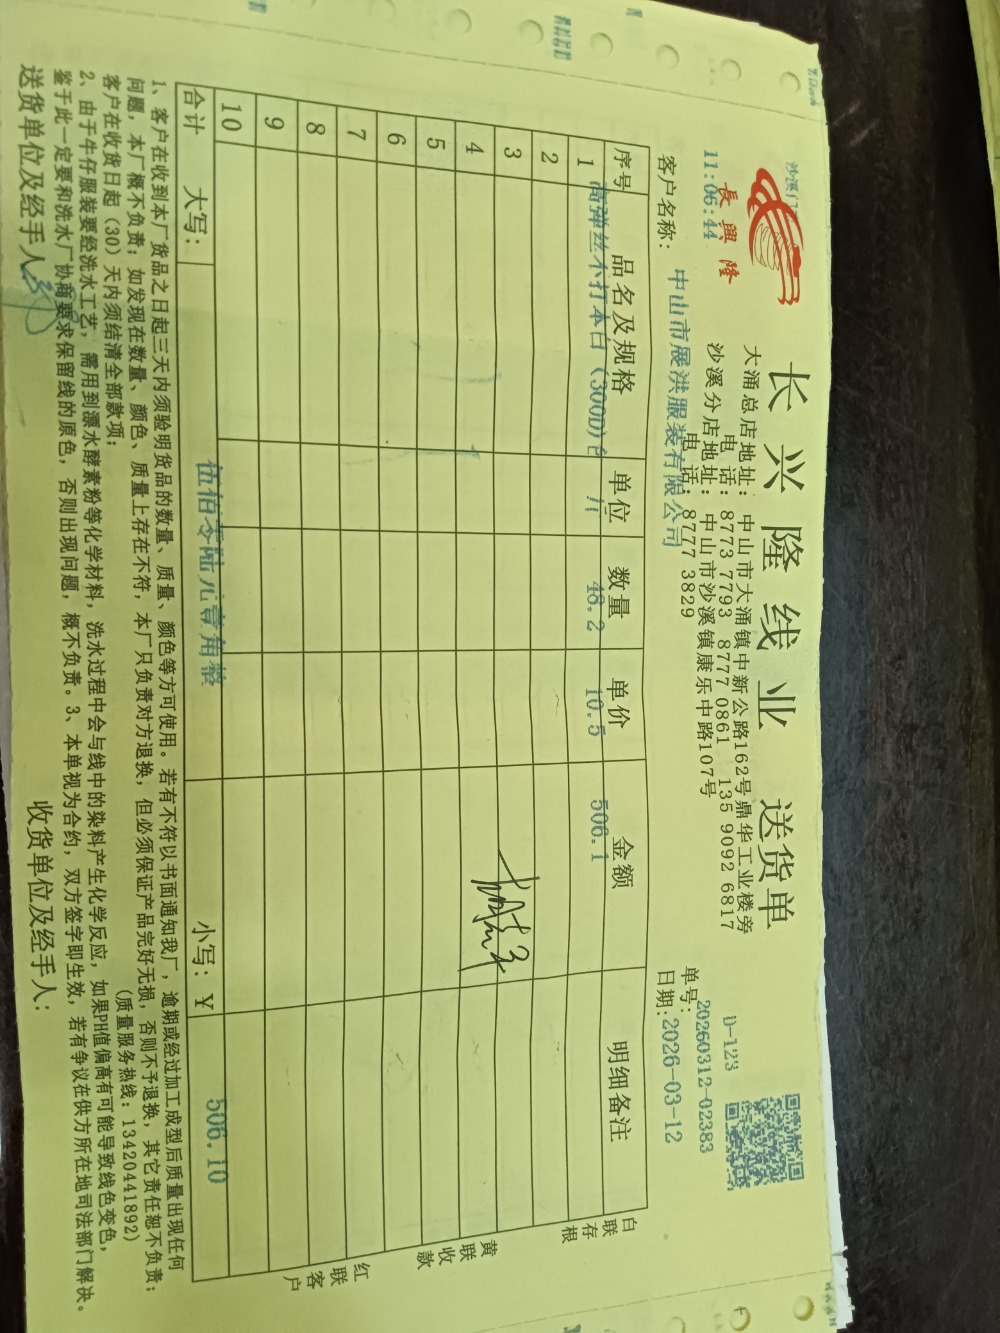 长兴隆线业 送货单
長興隆
沙溪门
11:06:44
大涌总店地址：中山市大涌镇中新公路162号鼎华工业楼旁
电 话：8773 7793 8777 0861 135 9092 6817
沙溪分店地址：中山市沙溪镇康乐中路107号
电 话：8777 3829
D-123
单号：20260312-02383
客户名称：中山市展洪服装有限公司
日期：2026-03-12
序号 品名及规格 单位 数量 单价 金额 明细备注
1 高弹丝不打本白（300D)色 斤 48.2 10.5 506.1
2
3
4
5
6
7
8
9
10
合计 大写：伍佰零陆元壹角整 小写：￥ 506.10
白联存根
黄联收款
红联客户
1、客户在收到本厂货品之日起三天内须验明货品的数量、质量、颜色等方可使用。若有不符以书面通知我厂，逾期或经过加工成型后质量出现任何
问题，本厂概不负责；如发现在数量、颜色、质量上存在不符，本厂只负责对方退换，但必须保证产品完好无损，否则不予退换，其它责任恕不负责；
客户在收货日起（30）天内须结清全部款项；
（质量服务热线：13420441892）
2、由于牛仔服装要经洗水工艺，需用到漂水酵素粉等化学材料，洗水过程中会与线中的染料产生化学反应，如果PH值偏高有可能导致线色变色，
鉴于此一定要和洗水厂协商要求保留线的原色，否则出现问题，概不负责。3、本单视为合约，双方签字即生效，若有争议在供方所在地司法部门解决。
送货单位及经手人：
收货单位及经手人：